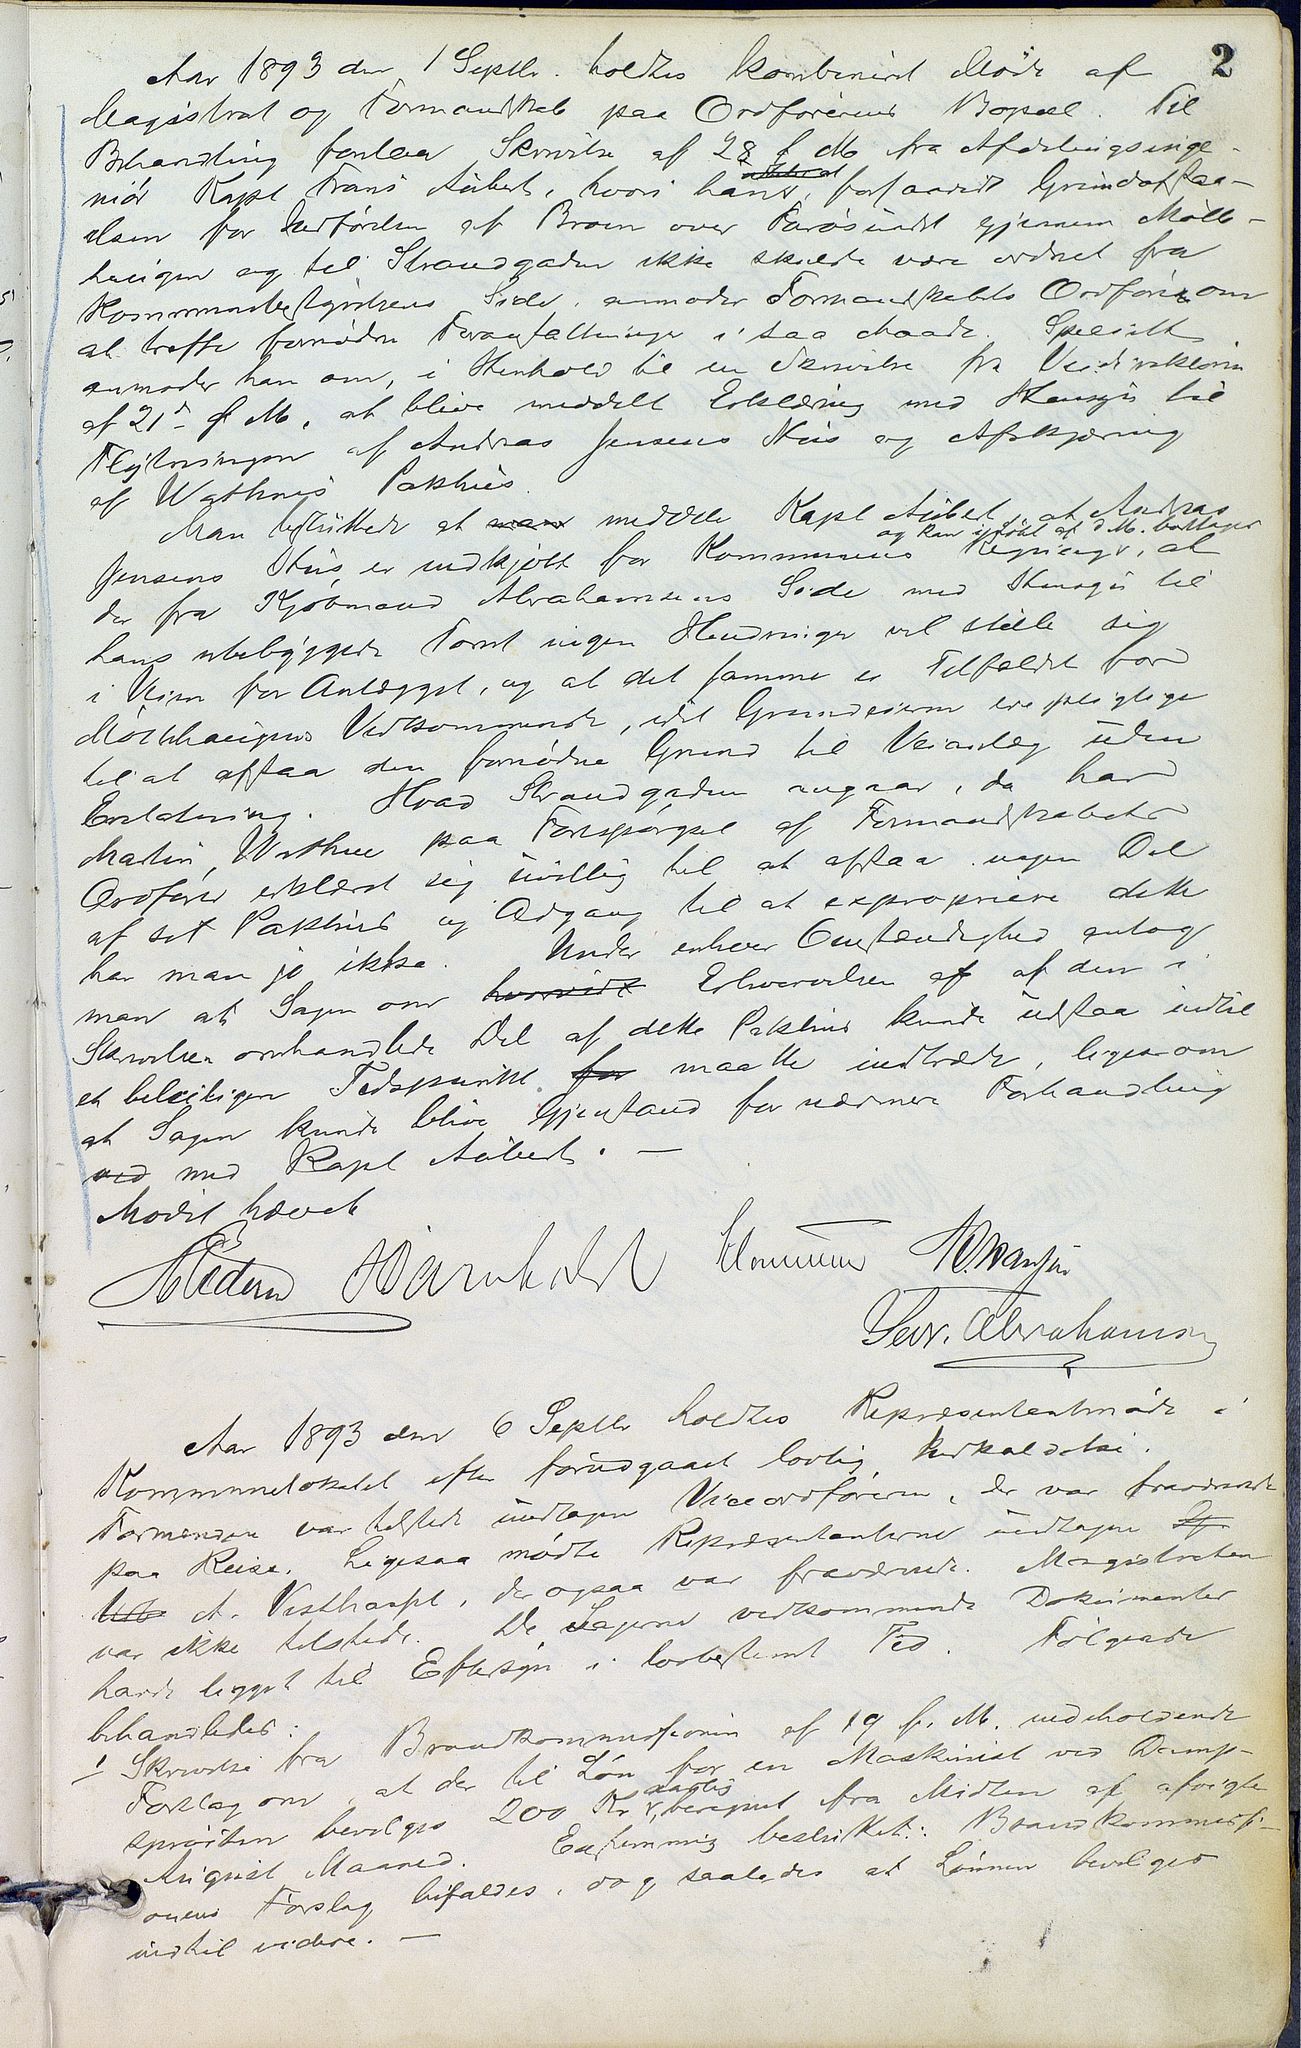 2
Aar 1893 den 1 Septbr. holdtes kombineret Møde af
Magistrat og Formandskab paa Ordførerens Bopæl. Til
Behandling forelaa Skrivelse af 28 f M fra Afdelingsinge-
niør Kapt Frans Aubert, hvori han, forsaavidt Grundafstaa-
elsen for Nedførelsen af Broen over Farøsundet gjennem Mølle-
haugen og til Strandgaden ikke skulde være ordnet fra
Kommunebestyrelsens Side, anmoder Formandskabets Ordfører om
at træffe fornødne Foranstaltninger i saa Maade. Specielt
anmoder han om, i Henhold til en Skrivelse fra Veidirektøren
af 21de f M, at blive meddelt Erklæring med Hensyn til
Flytningen af Andreas Jensens Hus og Afskjæring
af Wathnes Pakhus.
Man besluttede at man meddele Kapt Aubert, at Andreas
og kan af d M. borttages
Jensens Hus er indkjøbt for Kommunens Regning, at
der fra Kjøbmand Abrahamsens Side med Hensyn til
hans ubebyggede Tomt ingen Hindringer vil stille sig
i Veien for Anlægget, og at det samme er Tilfældet for
Møllehaugens Vedkommende, idet Grundeieren er pligtige
til at afstaa den fornødne Grund til Veianlæg uden
Erstatning. Hvad Strandgaden angaar, da har
Martin Wathne paa Forespørgsel af Formandskabets
Ordfører erklæret sig uvillig til at afstaa nogen Del
af sit Pakhus og Adgang til at expropriere dette
har man jo ikke. Under enhver Omstændighed antog
man at Sagen om hvorvidt Erhvervelsen af af den i
Skrivelsen omhandlede Del af dette Pakhus kunde udstaa indtil
et beleiligere Tidspunkt for maatte indtræde, ligesom
at Sagen kunde blive Gjenstand for nærmere Forhandling
ved med Kapt Aubert. —
Mødet hævet
Barnholdt
Sev. Abrahamsen
Aar 1893 den 6 Septbr holdtes Repræsentantmøde i
Kommunelokalet efter forudgaaet lovlig Indkaldelse.
Formændene var tilstede undtagen Viceordføreren, der var fraværende
paa Reise. Ligesaa mødte Repræsentanterne undtagen
A. Vesthassel, der ogsaa var fraværende. Magistraten
var ikke tilstede. De Sagerne vedkommende Dokumenter
havde ligget til Eftersyn i lovbestemt Tid. Følgende
behandledes:
1 Skrivelse fra Brandkommissionen af 19 f. M. indeholdende
Forslag om, at der til Løn for en Maskinist ved Damp-
sprøiten bevilges 200 Kr aarlig, beregnet fra Midten af afvigte
August Maaned. Enstemmig besluttet: Brandkommissi-
onens Forslag bifaldes, dog saaledes at Lønnen bevilges
indtil videre. —